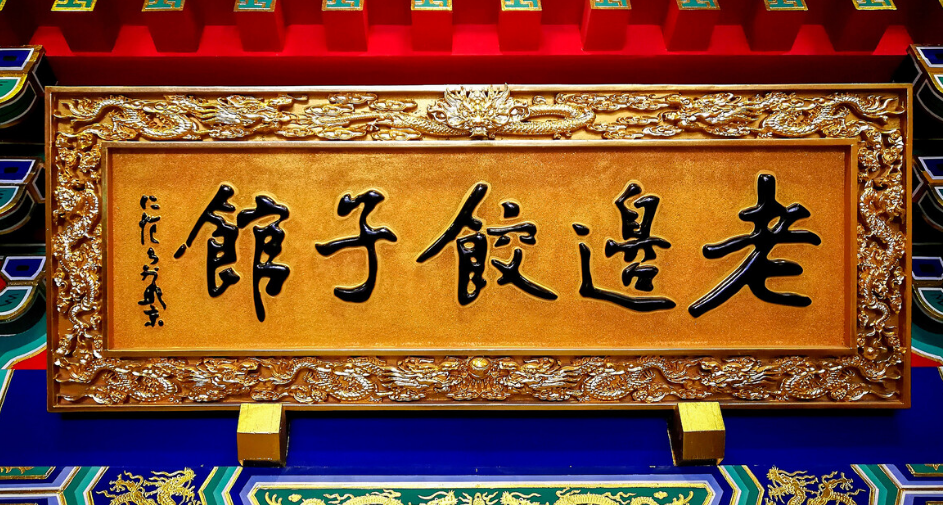 老邊餃子館